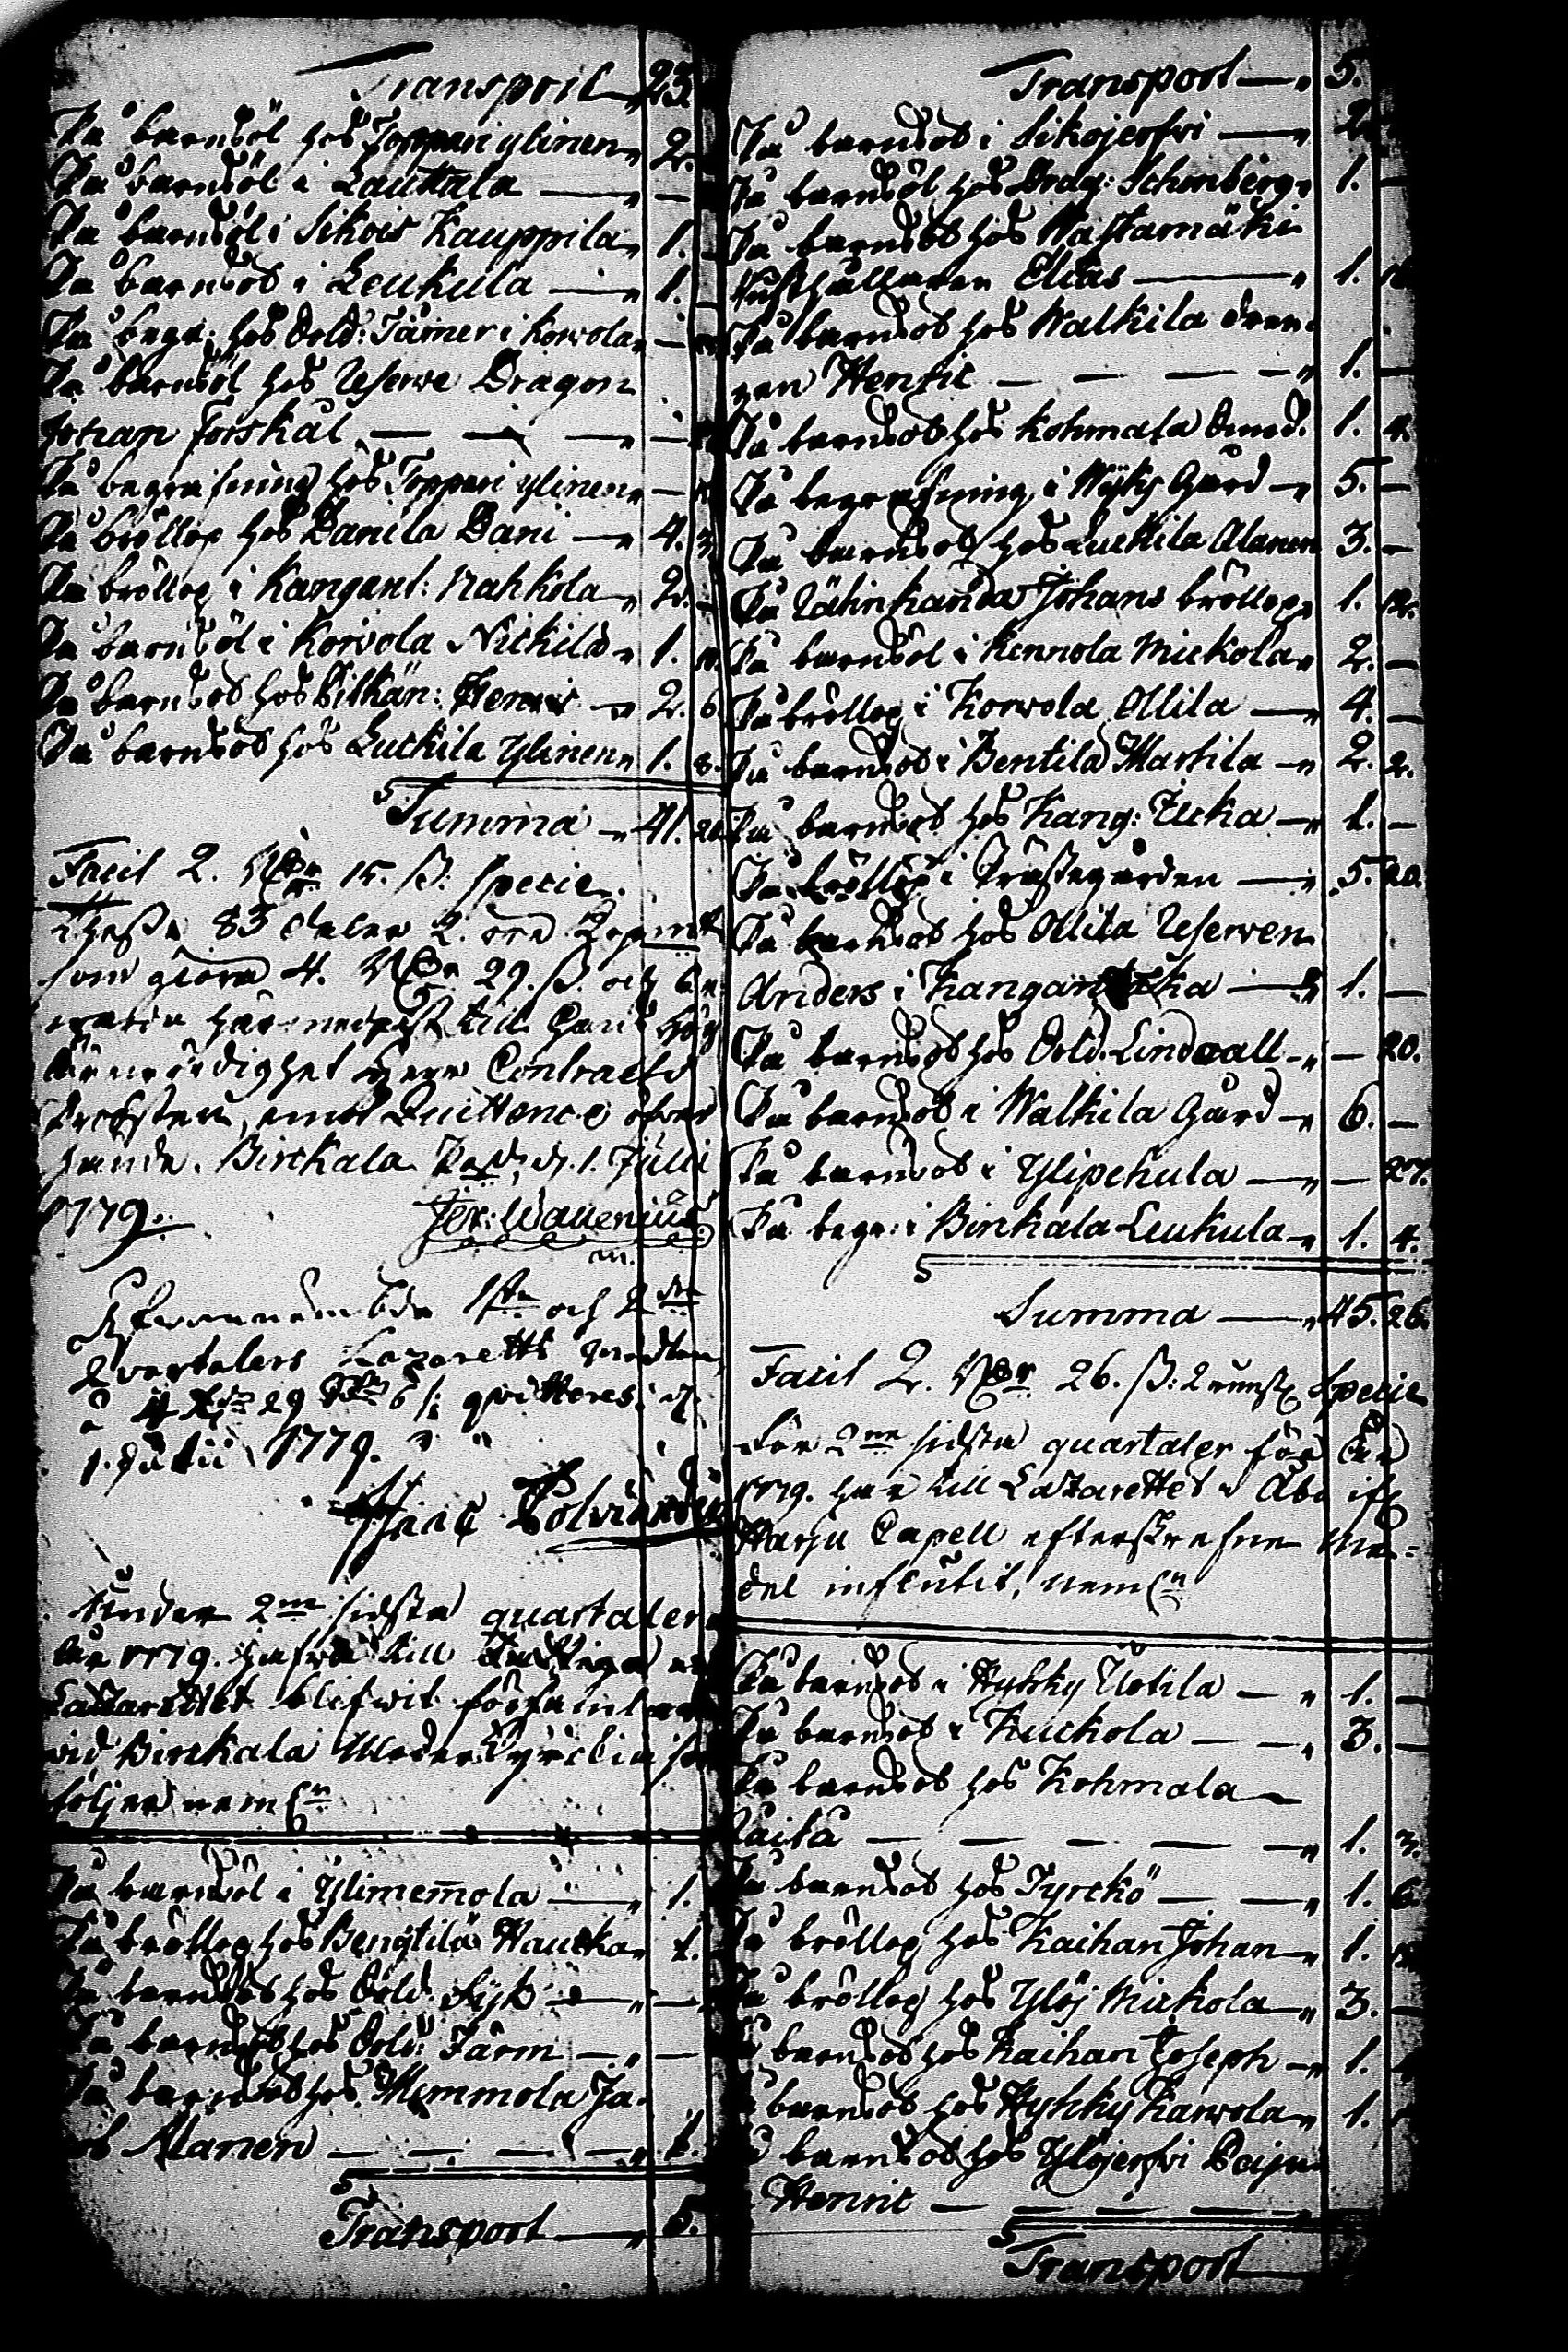 Transport — „ 23
På barnsöl hos Toppari ylinen „ 2.
På barnsöl i Lauttala — „ —
På barnsöl i Sikois Kauppila „ 1.
På barnsöl i Leukula — „ 1.
På begr: hos Sold: Jämer i Korvola „ —
På barnsöl hos Reserve Dragon
Johan Forskål — — — „ —
På begrafning hos Toppari ylinen „ —
På bröllop hos Danila Dani — „ 4. 3
På bröllop i Kangant: Nahkola „ 2. —
På barnsöl i Korvola Nickilä „ 1. 10.
På barnsöl hos Pitkän: Henric — „ 2. 6
På barnsöl hos Luckila Ylinen „ 1. 8.
Summa — „ 41. 20
Facit 2. Rdr 15. ß: specie.
83 daler 2. öre Kopmt
som giöra 4. Rdr 29. ß. och 6
till
Herr Contracts
Prosten, emot Quittence öfver
sände. Birkala d. 1. Julii
1779. Jer: Wallenius
m.
1sta och 2dra
Qvartalers Lazaretts
à 4 29 6 qvitteres d.
1. Julii 1779.
Isaac Polviander
Under 2ne sidsta quartaler
år 1779. hafva till
Lazarettet blifwit
wid Birckala Moder Kyrckia
följer nemln
På barnsöl i Ylimemmola — „ 1.
På bröllop hos Bengtilä Haucka „ 1.
På barnsöl hos Sold: Fisk — „ —
På barnsöl hos Sold: Järm — „ —
På barnsöl hos Memmola Ja-
Alanen — — — — „ 1.
Transport — „ 5.
Transport — „ 5.
På barnsöl i Sikojerfvi — „ 2
På barnsöl hos Drag: Schmberg „ 1. —
På barnsöl hos Wastamäki
Rusthållaren Elias — „ 1.
På barnsöl hos Walkila dren-
gen Henric — — — — „ 1. —
På barnsöl hos Kohmala 1. 4.
På begrafning i Gård — „ 5. —
På barnsöl hos Luckila Alanen 3. —
På Johans bröllop „ 1. 12.
På barnsöl i Kennola Mickola „ 2. —
På bröllop i Korvola Ollila — „ 4. —
På barnsöl i Bentilä Martila — „ 2. 2.
På barnsöl hos Kang: — „ 1. —
På bröllop i Prästegården — „ 5. 20.
På barnsöl hos Ollila Reserven
Anders i — „ 1. —
På barnsöl hos Sold. Lindvall — „ — 20.
På barnsöl i Walkila Gård — „ 6. —
På barnsöl i Ylipehula — „ — 27.
På begr: i Birkala Leukula — „ 1. 4.
Summa — „ 45. 26.
Facit 2. Rdr 26. ß: 2 runst Specie
För 2ne sidsta quartaler för år
1779. har till Lazarettet i Åbo
Harju Capell efterskrefne me-
del influtit, nemln
På barnsöl i Hyhky Uotila — „ 1. —
På barnsöl i Kuckola — — „ 3. —
På barnsöl hos Kohmala
Raita — — — — „ 1. 3.
På barnsöl hos Tyrckö — — „ 1. 6
På bröllop hos Kaihan Johan — „ 1.
På bröllop hos Ylöj Mickola — „ 3. —
barnsöl hos Kaihan Joseph — „ 1.
barnsöl hos Hyhky Karvola „ 1.
barnsöl hos Ylöjerfvi Paju
Henric — — — —
Transport —